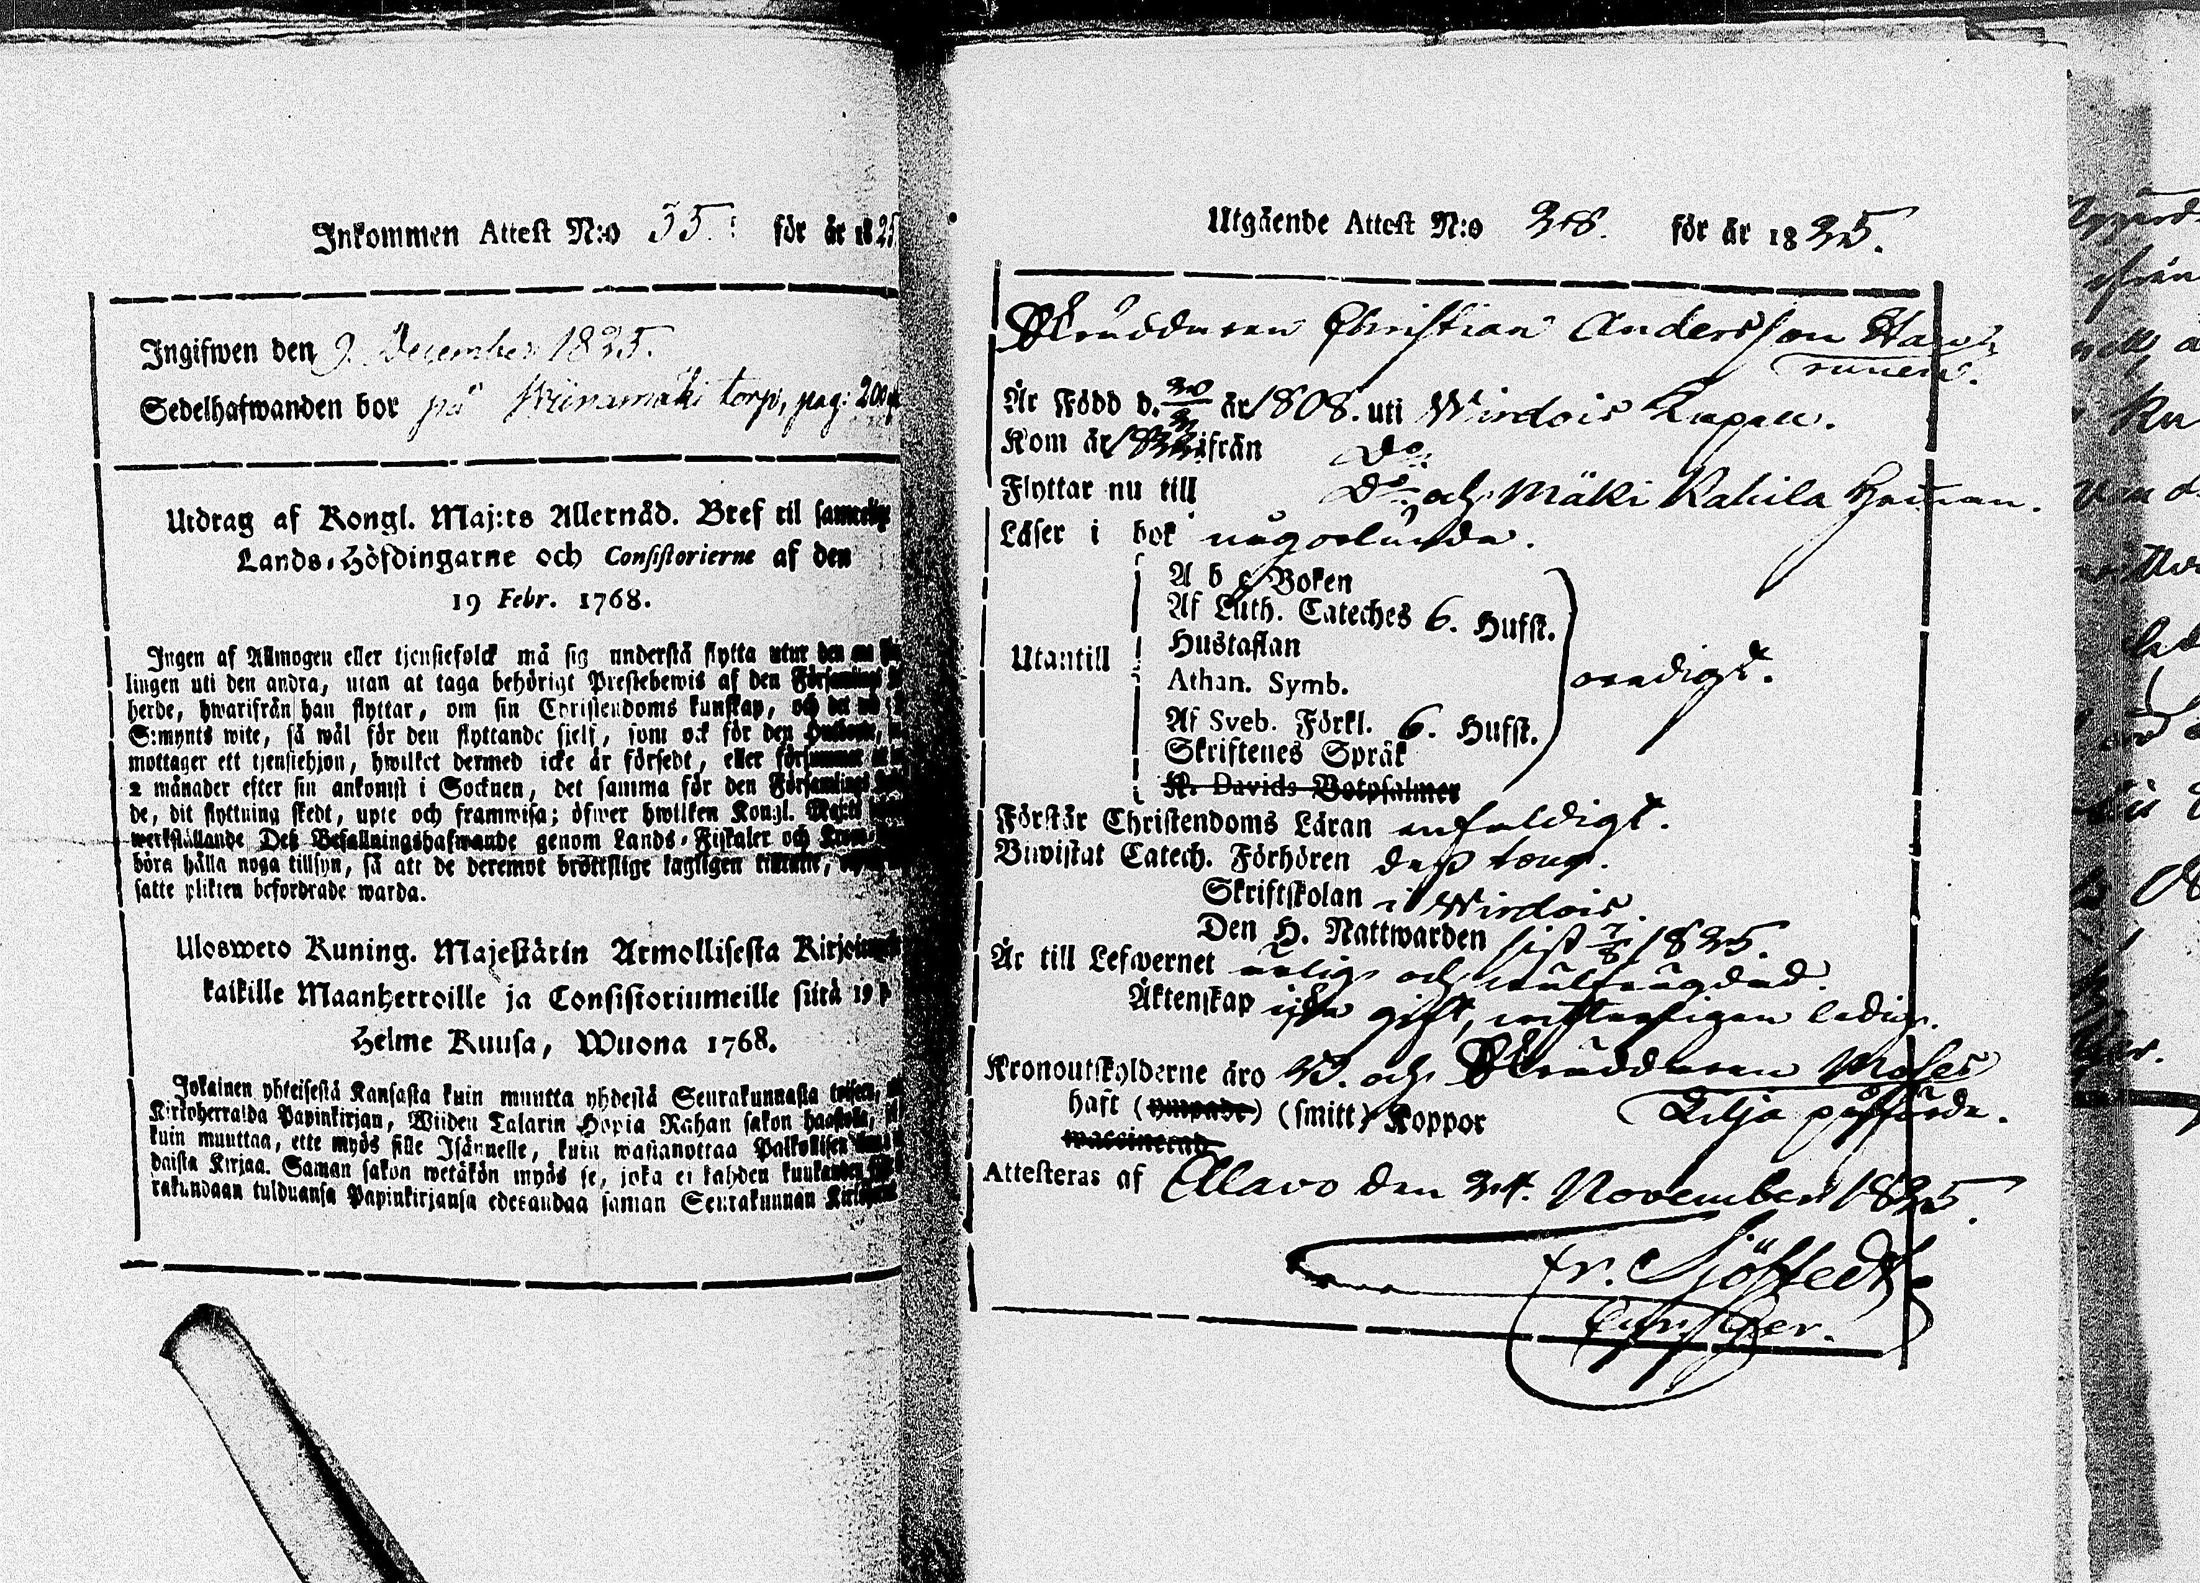 Inkommen Attest N:o 35. för år 1825
Ingifwen den 9 December 1825.
Sedelhafwanden bor på torp, pag: 200
Utdrag af Kongl. Maj:ts Allernåd. Bref til samtelige
Lands-Höfdingarne och Consistorierne af den
19 Febr. 1768.
Ingen af Allmogen eller tjenstefolck må sig understå flytta utur den ena
lingen uti den andra, utan at taga behörigt Prestebewis af den Församlings
herde, hwarifrån han flyttar, om sin Christendoms kunskap, och det wid
S:mynts wite, så wäl för den flyttande sielf, som ock för den Husbonde,
mottager ett tjenstehjon, hwilket dermed icke är försedt, eller försummar
2 månader efter sin ankomst i Socknen, det samma för den Församlings
de, dit flyttning skedt, upte och framwisa; öfwer hwilken Kongl. Maj:ts
werkställande Deß Befallningshafwande genom Lands-Fiskaler och
böra hålla noga tillsyn, så att de deremot bröttslige lagligen tilltalte,
satte plikten befordrade warda.
Ulosweto Kuning. Majestätin Armollisesta Kirjoituxesta
kaikille Maanherroille ja Consistoriumeille siitä 19 p
Helme Kuusa, Wuona 1768.
Jokainen yhteisestä Kansasta kuin muutta yhdestä Seurakunnasta toiseen,
Kirkoherralda Papinkirjan, Wiiden Talarin Hopia Rahan sakon haastolla,
kuin muuttaa, ette myös sille Isännelle, kuin wastanottaa Palkollisen
daista Kirjaa. Saman sakon wetäkön myös se, joka ei kahden kuukauden
rakundaan tulduansa Papinkirjansa edesandaa saman Seurakunnan
Utgående Attest N:o 248. för år 1825.
Skräddaren Christian Andersson
Är Född d. 20 år 1808. uti Wirdois Capell.
Kom år ifrån Do.
Flyttar nu till Do. och Mäki Kahila Hemman.
Läser i bok någorlunda.
A b c Boken
Af Luth. Cateches 6. Hufst.
Hustaflan
Utantill
Athan. Symb.
oredigt.
Af Sveb. Förkl. 6. Hufst.
Skriftenes Språk
K. Davids Botpsalmer
Förstår Christendoms Läran enfaldigt.
Biwistat Catech. Förhören
Skriftskolan i Wirdois.
Den H. Nattwarden sist 1825.
Är till Lefwernet ärlig och wälfrägdad.
Äktenskap icke gift, ledig.
Kronoutskylderne äro Skräddaren Moses
Lilja påförda.
haft (ympade) (smitt) Koppor
waccinerad
Attesteras af Alavo den 24. November 1825.
Fr. Sjöstedt